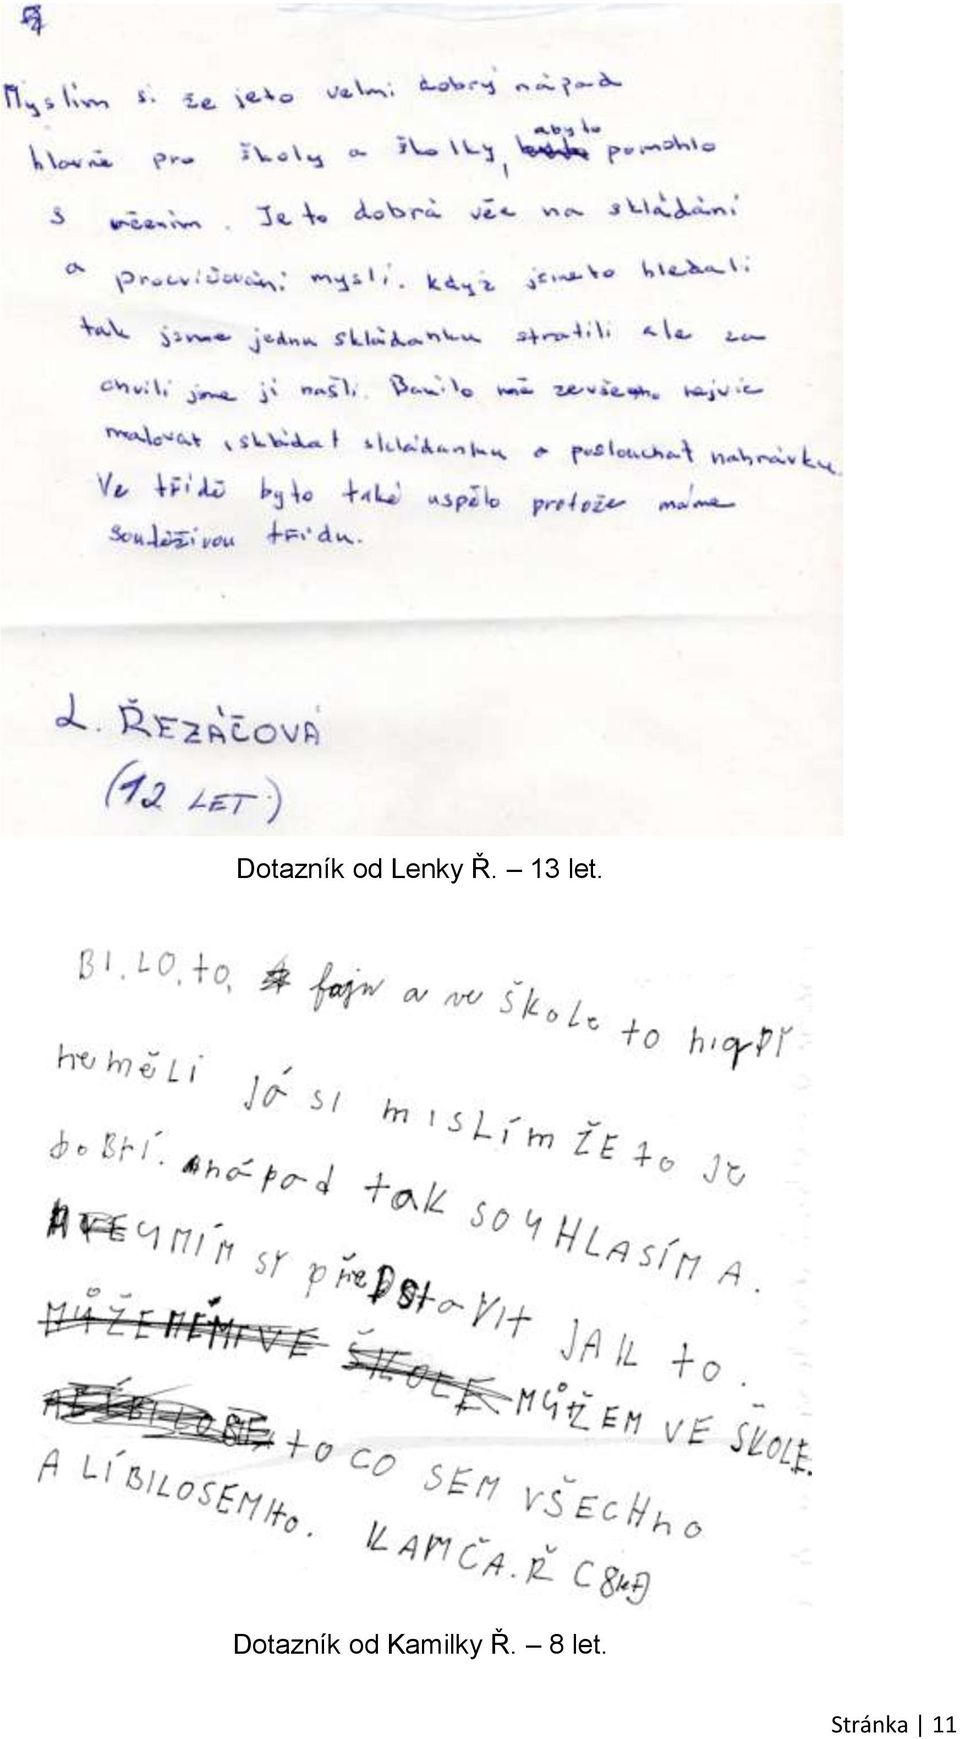 Myslím si že jeto velmi dobrý nápad
hlavně pro školy a školky, aby to pomohlo
s učením. Je to dobrá věc na skládání
a procvičování mysli. když jsmeto hledali
tak jsme jednu skládanku stratili ale za
chvili jsme ji našli. Bavilo mě ze všeho nejvíc
malovat, skládat skládanku a poslouchat nahrávku.
Ve třídě by to také uspělo protože máme
soutěživou třídu.
L. ŘEZÁČOVÁ
(12 LET)
Dotazník od Lenky Ř. – 13 let.
BI.LO.to. fajn a ve škole to higdí
neměli já si mislím ŽE to je
doBrí. nápad tak SOUHLASÍM A.
UMÍM SI přeDstaVit JAK to.
MŮŽEM VE ŠKOLE.
to CO SEM VŠECHno
A LÍBILOSEMHo. KAMČA.Ř
Dotazník od Kamilky Ř. – 8 let.
Stránka | 11